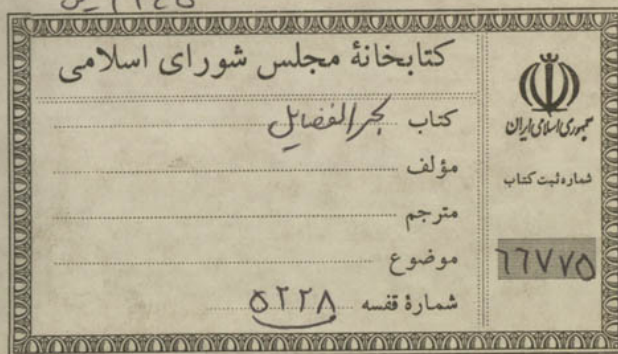 کتابخانهٔ مجلس شورای اسلامی
کتاب بحرالفضایل
مؤلف
مترجم
موضوع
شمارهٔ قفسه ٥٢٢٨
جمهوری اسلامی ایران
شماره ثبت کتاب
٦٦٧٧٥